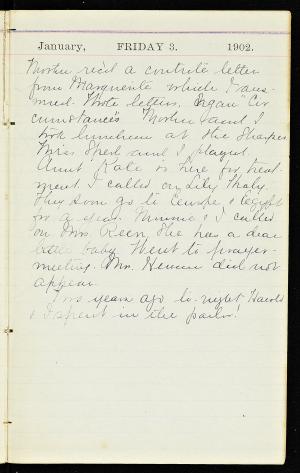 January, FRIDAY 3. 1902.
Mother rec'd a contrite letter
from Marguerite which I ans-
wered. Wrote letters, began "Cir
cumstances" Mother and I
took luncheon at the Sharpes
Miss Sherl and I played.
Aunt Kate is here for treat-
ment. I called on Lily Thaty.
They soon go to Europe & Egypt
for a year. Minnie & I called
on Mrs. Keen, She has a dear
little baby. Went to prayer-
meeting. Mr. did not
appear.
Two years ago to-night, Harold
& I spent in the parlor!